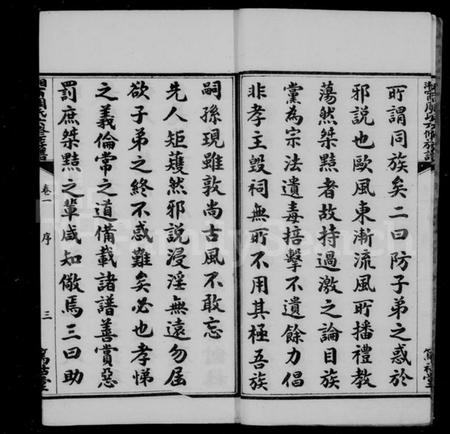 所謂同族矣二曰防子弟之惑於
邪說也歐風東漸流風所播禮教
蕩然桀黠者故持過激之論目族
黨為宗法遺毒掊擊不遺餘力倡
非孝主毀祠無所不用其極吾族
嗣孫現雖敦尚古風不敢忘
先人矩矱然邪說浸淫無遠勿屆
欲子弟之終不惑難矣必也孝悌
之義倫常之道備載諸譜善賞惡
罰庶桀黠之輩咸知儆焉三曰助
卷一 序
三